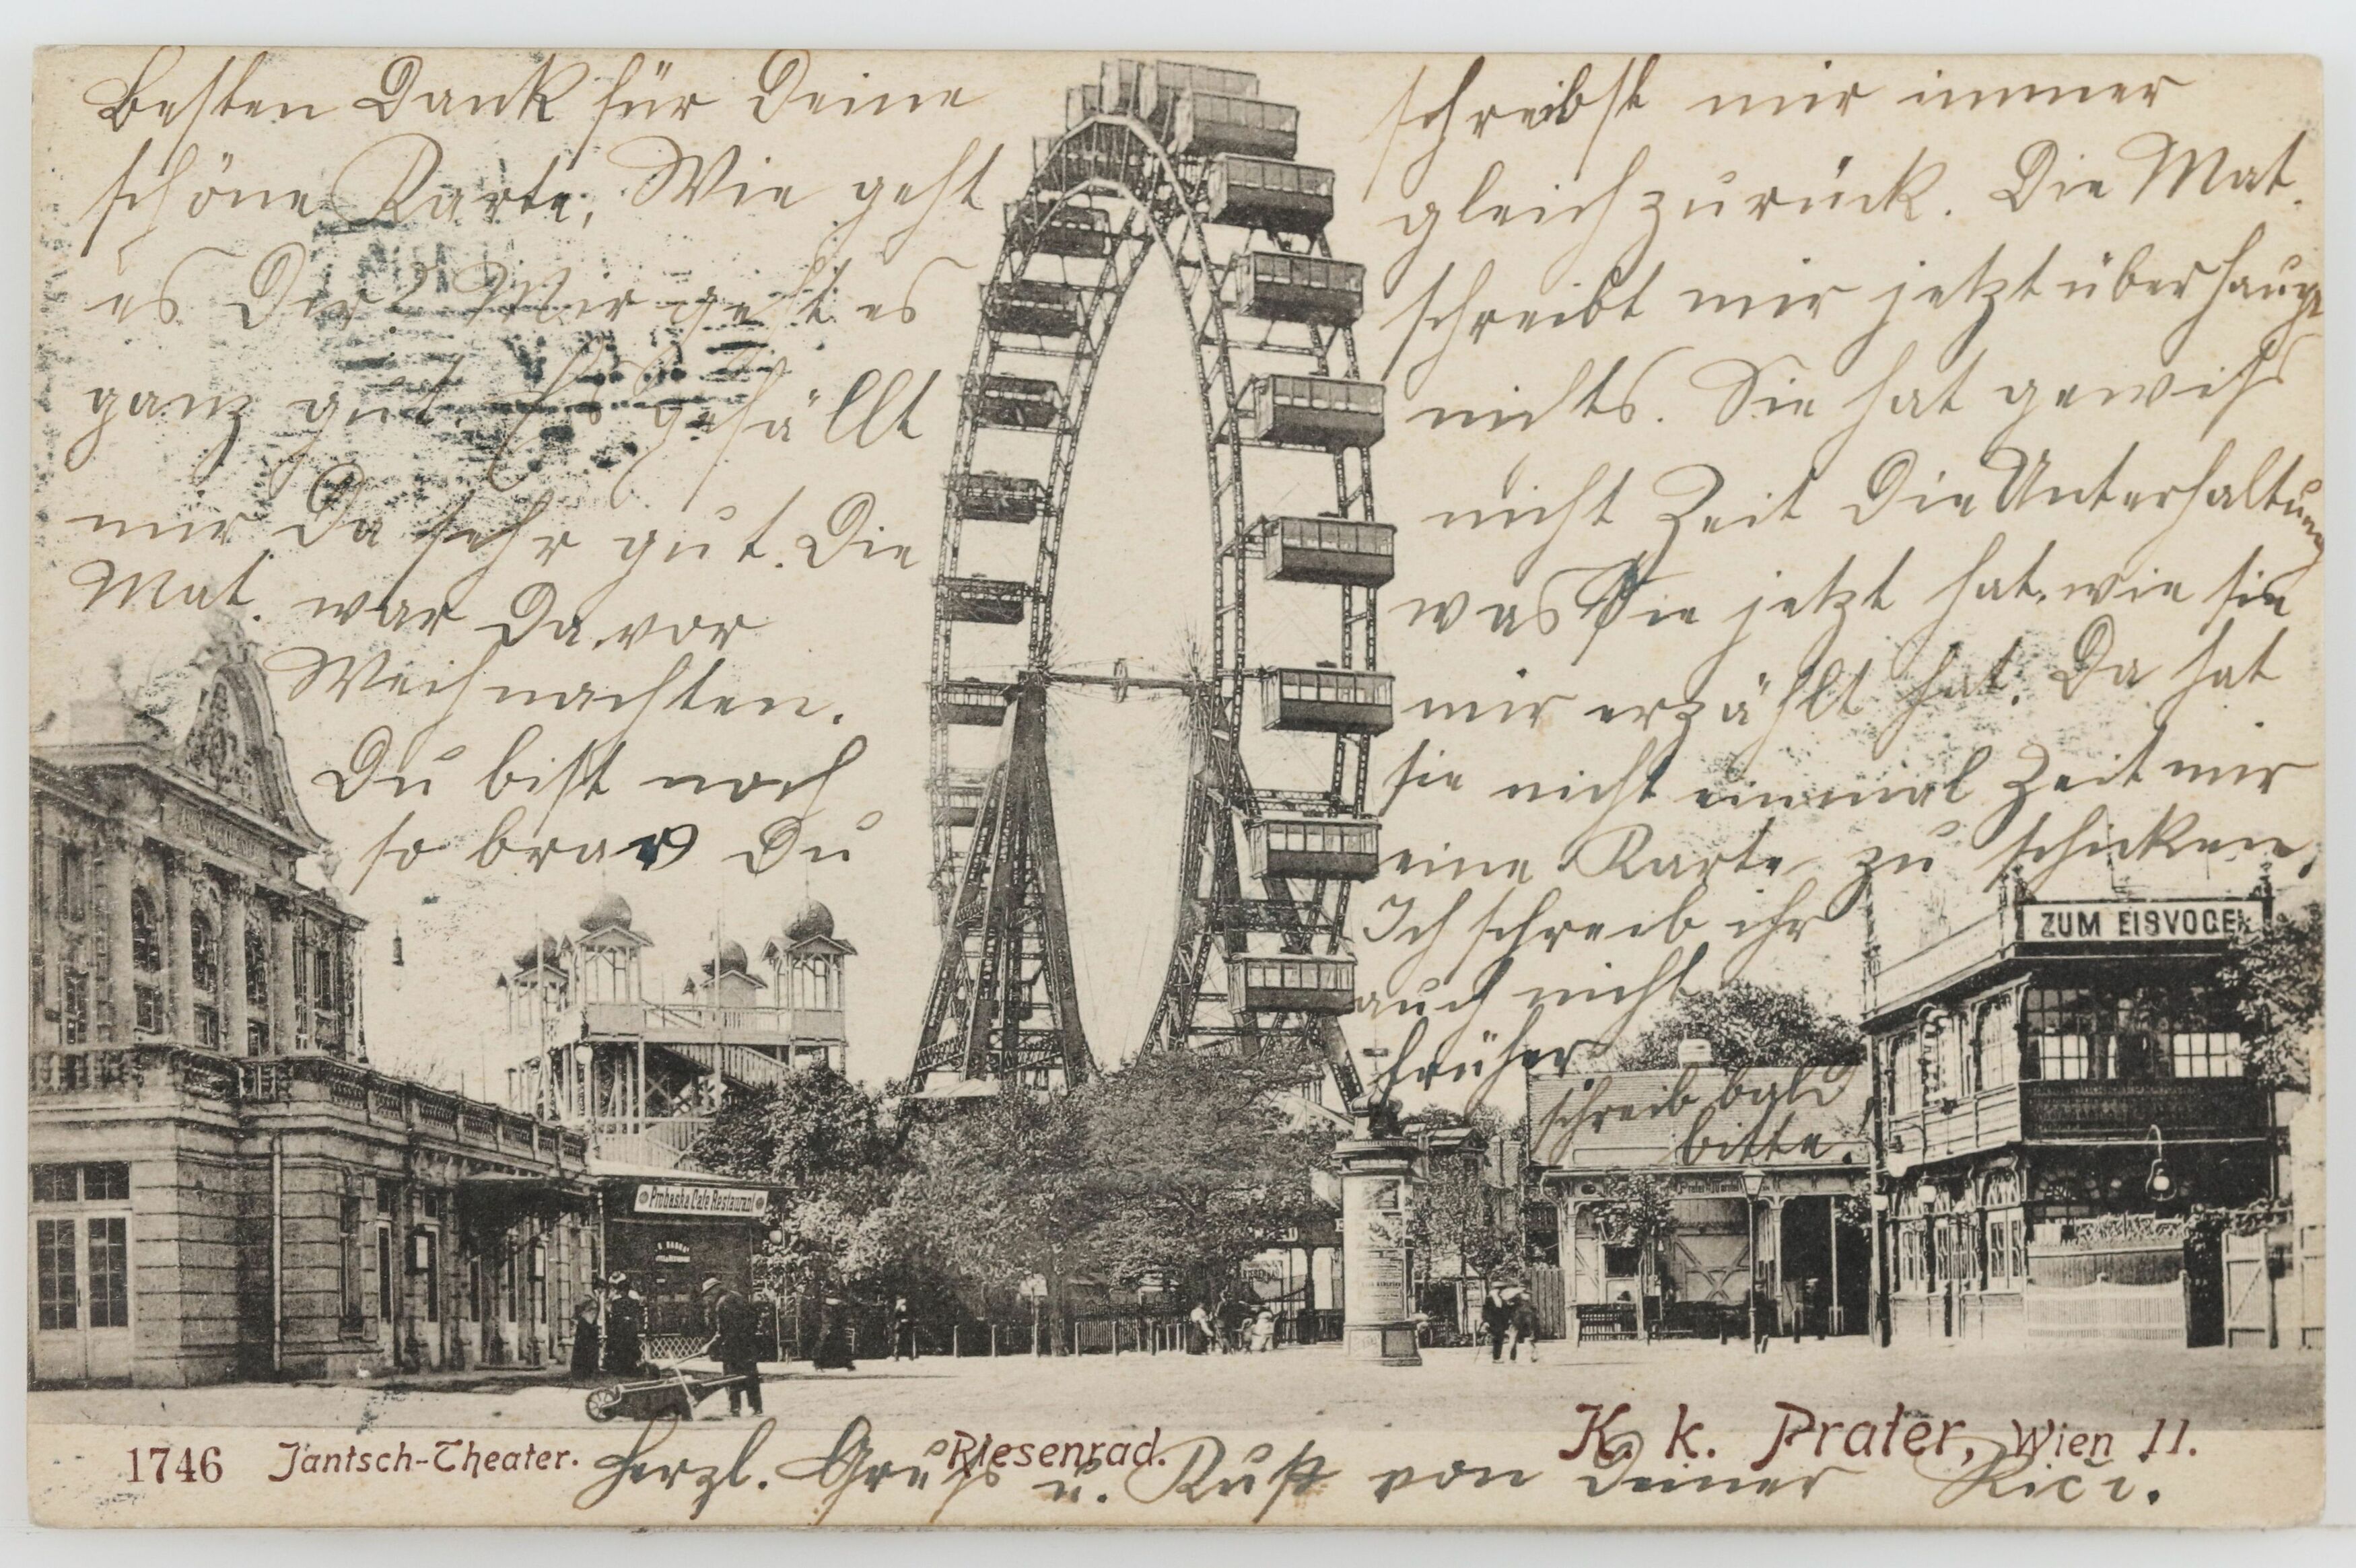 Besten Dank für Deine
schöne Karte. Wie geht
es Dir? Mir geht es
ganz gut. Es gefällt
mir da sehr gut. Die
Mat. war da vor
Weihnachten.
Du bist noch
so brav Du
schreibst mir immer
gleich zurück. Die Mat.
schreibt mir jetzt überhaupt
nichts. Sie hat gewiß
nicht Zeit die Unterhaltung
was sie jetzt hat, wie sie
mir erzählt hat. Da hat
sie nicht einmal Zeit mir
eine Karte zu schicken.
Ich schreib ihr
auch nicht
früher
schreib bald
bitte.
ZUM EISVOGEL
Prohaska Café Restaurant
1746 Jantsch-Theater. Riesenrad. K. k. Prater, Wien II.
Herzl. Gruß u. Kuß von Deiner Rici.